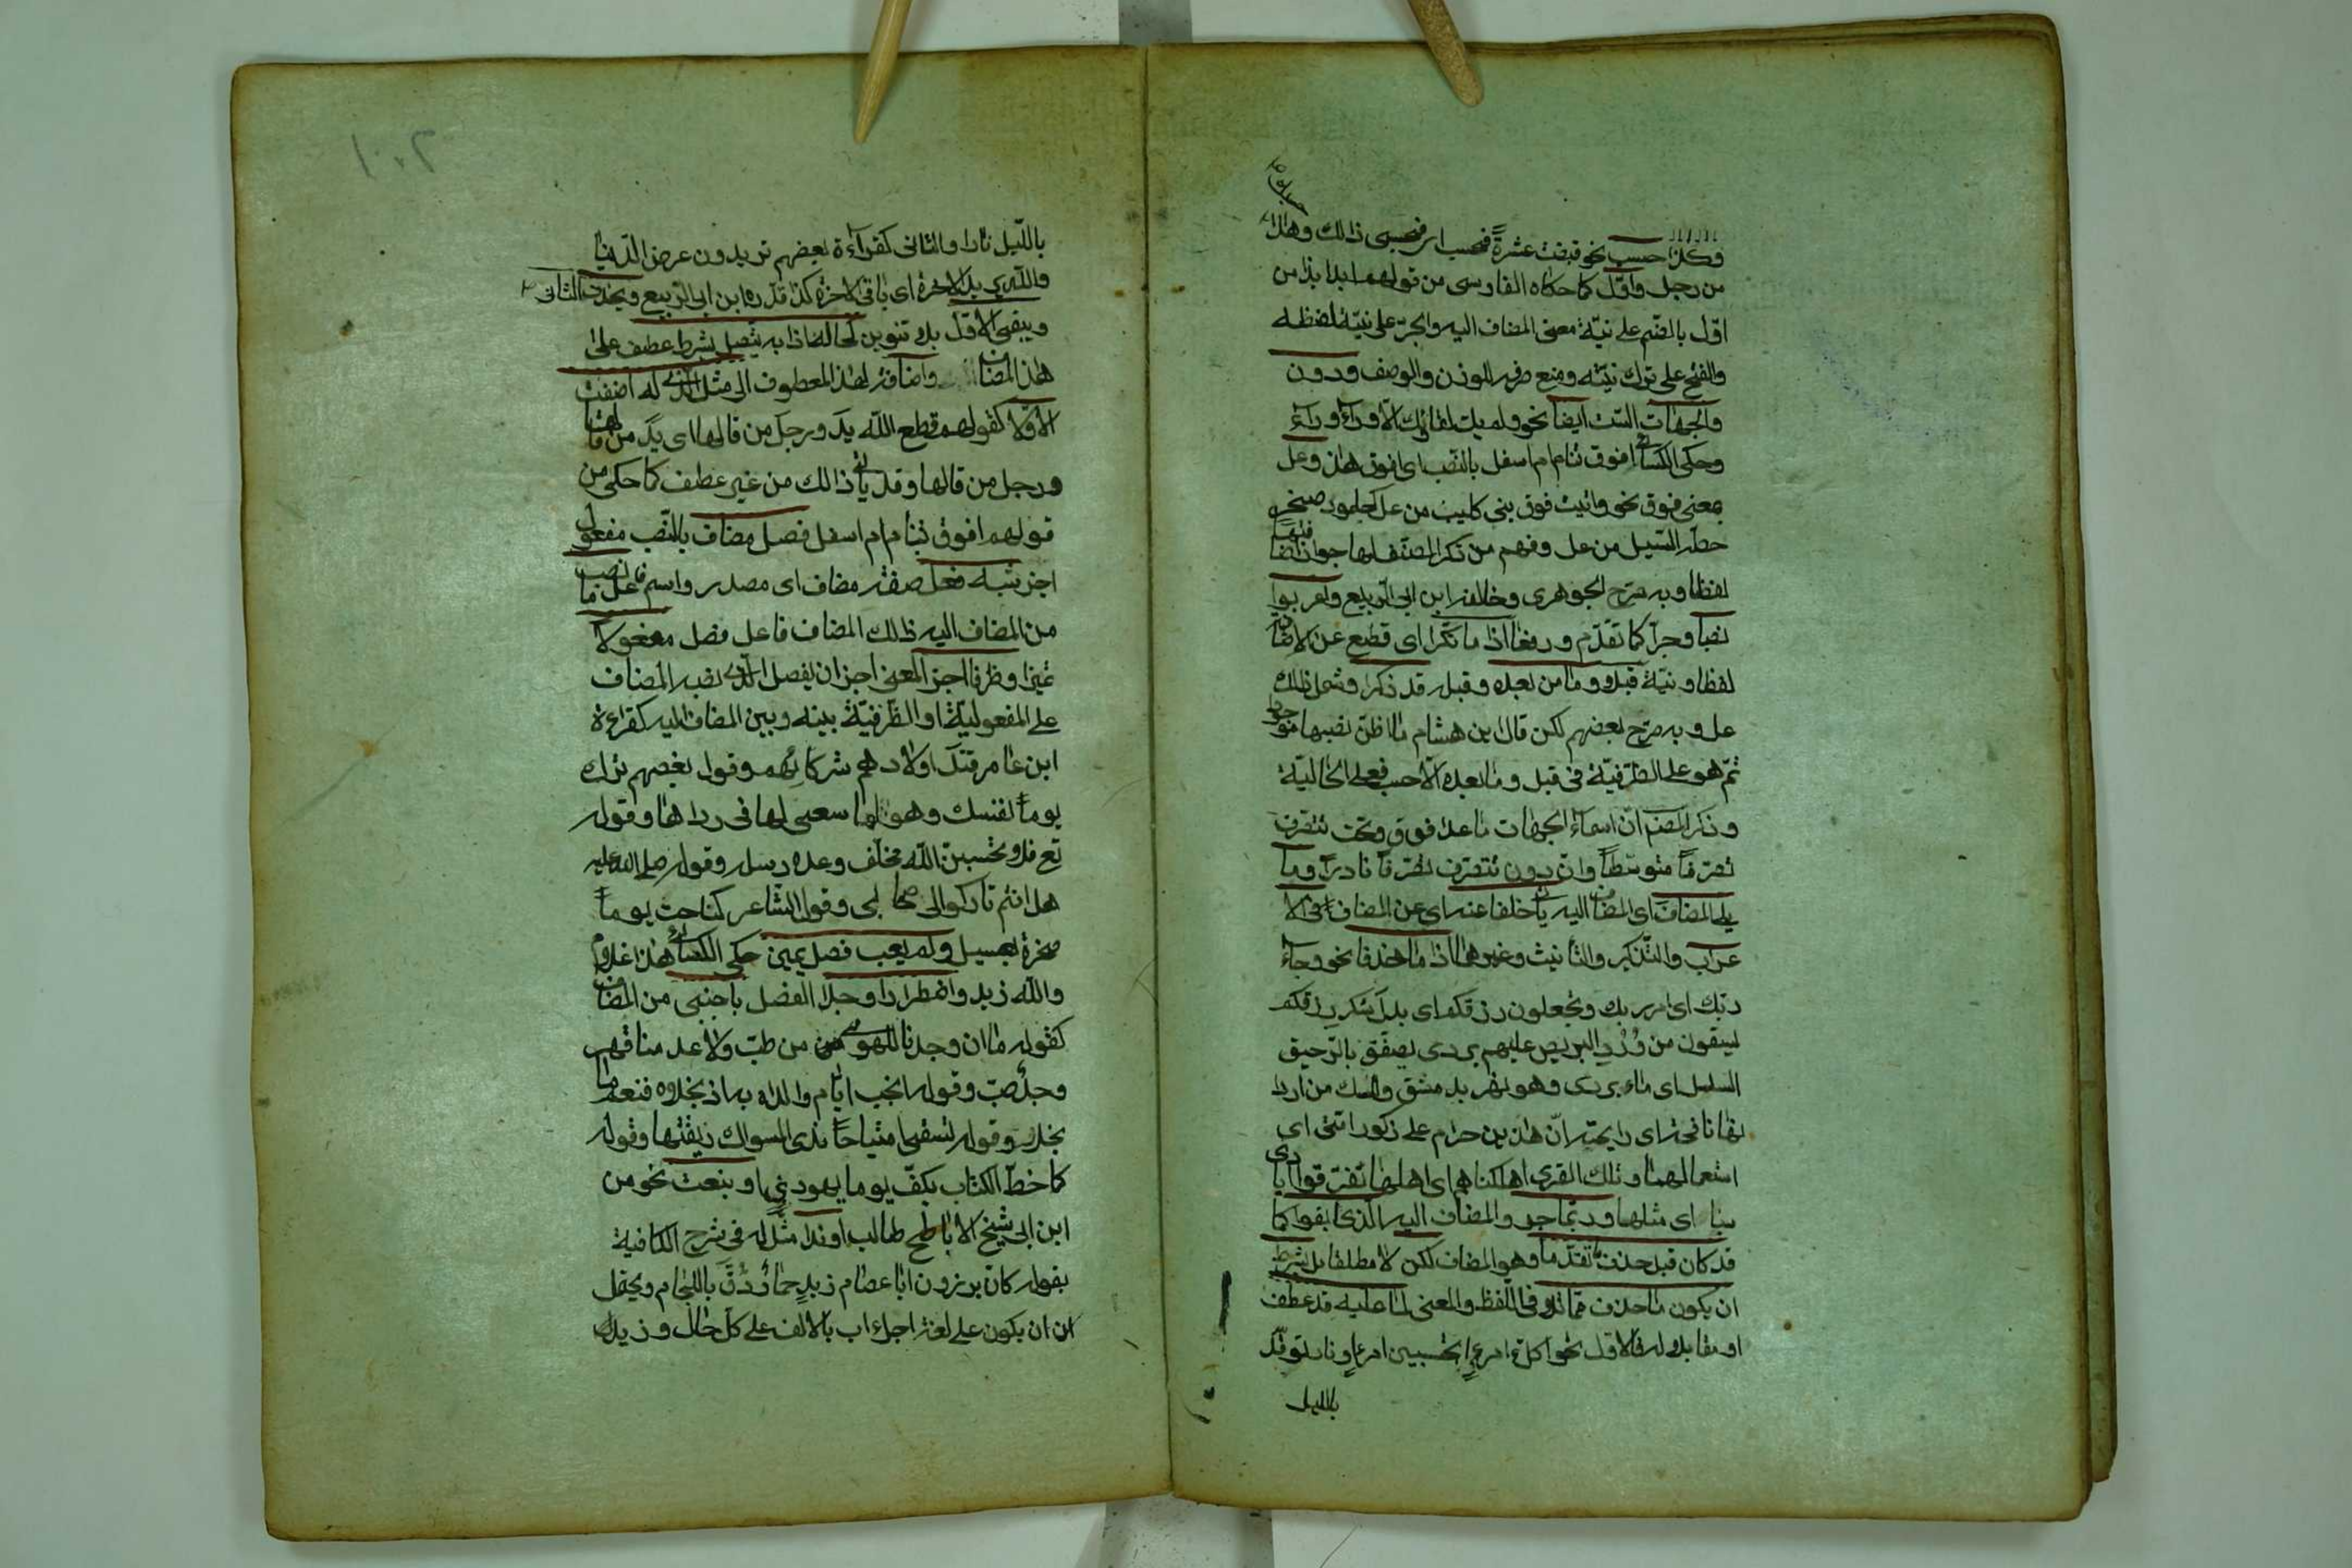 وكذا حسب نحو قبضت عشرةً فحسب اى فحسبى ذالك وهذا
حسبك من رجل واوّل كما حكاه الفارسى من قولهم ابدا بذا من
اوّل بالضّم على نيّة معنى المضاف اليه والجرّ على نيّة لفظه
والفتح على ترك نيّته ومنع صرفه للوزن والوصف ودون
والجهات الستّ ايضا نحو ولم يك لقائك الّا وراءُ وراءُ
وحكى الكسائى افوق تنام ام اسفل بالنّصب اى افوق هذا وعل
بمعنى فوق نحو واتيت فوق بنى كليب من عل كجلمود صخر
حطّه السّيل من عل وفهم من ذكر المصنّف لها جواز اضافتها
لفظا وبه صرّح الجوهرى وخالفه ابن ابى الرّبيع واعربوا
نصبا وجرّا كما تقدّم ورفعا اذا ما نكّرا اى قطع عن الاضافة
لفظا ونيّة قبلا وما من بعده وقبله قد ذكرا وشمل ذلك
عل وبه صرّح بعضهم لكن قال ابن هشام ما اظنّ نصبها موجودا
ثمّ هو على الظّرفيّة فى قبل وما بعده الّا حسب فعلى الحاليّة
وذكر المصنف انّ اسماء الجهات ما عدا فوق وتحت تتصرف
تصرّفا متوسّطا وان دون تتصرف تصرّفا نادرا وما
يلى المضاف اى المضاف اليه ياتى خلفا عنه اى عن المضاف فى الا
عراب والتّذكير والتأنيث وغيرها اذا ما حذفا نحو وجاء
ربّك اى امر ربك وتجعلون رزقكم اى بدل شكر رزقكم
ليسقون من وَرَدَ البريص عليهم بردى يصفّق بالرّحيق
السلسل اى ماء بردى وهو نهر بدمشق والمسك من اردا
نها نافحة اى رايحته انّ هذين حرام على ذكور امتى اى
استعمالهما وتلك القرى اهلكناهم اى اهلها تفرّقوا ايادى
سبا اى مثلها وربّما جرّوا المضاف اليه الّذى ابقوا كما
قد كان قبل حذف ما تقدّما وهو المضاف لكن لا مطلقا بل بشرط
ان يكون ما حذف مماثلا فى اللّفظ والمعنى لما عليه قد عطف
او مقابلا له فالاوّل نحو اكلّ امرءٍ تحسبين امرءا ونار توقّد
بالليل
بالّليل نارا والثانى كقراءة بعضهم تريدون عرض الدّنيا
واللّه يريد الاخرة اى باقى الاخرة كذا قدّره ابن ابى الرّبيع ويحذف الثانى
ويبقى الاوّل بلا تنوين كحاله اذا به يتّصل بشرط عطف على
هذا المضاف واضافة لهذا المعطوف الى مثل الّذى له اضفت
الاوّلا كقولهم قطع اللّه يد ورجل من قالها اى يد من قالها
ورجل من قالها وقد يأتى ذالك من غير عطف كما حكى من
قولهم افوق تنام ام اسفل فصل مضاف بالنّصب مفعول
اجز شبه فعل صفة مضاف اى مصدر واسم فاعل ما نصب
من المضاف اليه ذلك المضاف فاعل فصل مفعولا
تميزا وظرفا اجز المعنى اجز ان يفصل الّذى نصبه المضاف
على المفعوليّة او الظّرفيّة بينه وبين المضاف اليه كقراءة
ابن عامر قتل اولادهم شركائهم وقول بعضهم ترك
يوماً نفسك وهواها سعى لها فى رداها وقوله
تع فلا تحسبنّ اللّه مخلف وعده رسله وقوله صلى الله عليه
هل انتم تاركوا لى صاحبى وقول الشّاعر كناحت يوماً
صخرة بعسيل ولم يعب فصل يمين حكى الكسائى هذا غلام
واللّه زيد واضطرارا وجدا الفصل باجنبى من المضاف
كقوله ما ان وجدنا للهوى من طبّ ولا عدمنا قهر
وجد صبّ وقوله انجب ايّام والداه به اذ نجلاه فنعم ما
نجلا وقوله تسقى امتياحا ندى المسواك ريقتها وقوله
كما خطّ الكتاب بكفّ يوما يهودىٍ او بنعت نحو من
ابن ابى شيخ الاباطح طالب او ندا مثّل له فى شرح الكافية
بقوله كانّ برذون ابا عصام زيدٍ حمارٌ دُقّ باللجام ويحتمل
ان يكون على لغة اجراء اب بالالف على كل حال وزيد